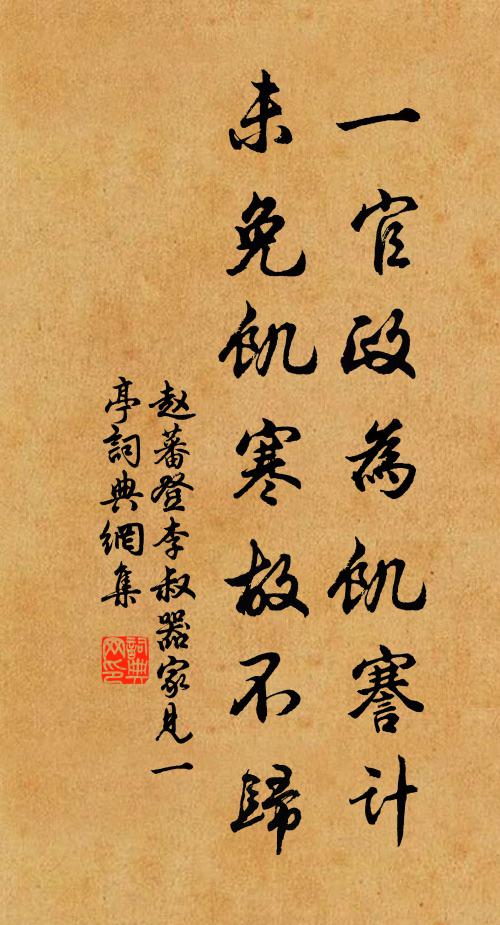 一官政為飢謇計
未免飢寒故不歸
赵蕃登李叔器家見一
亭詞典網集
詞典
网印